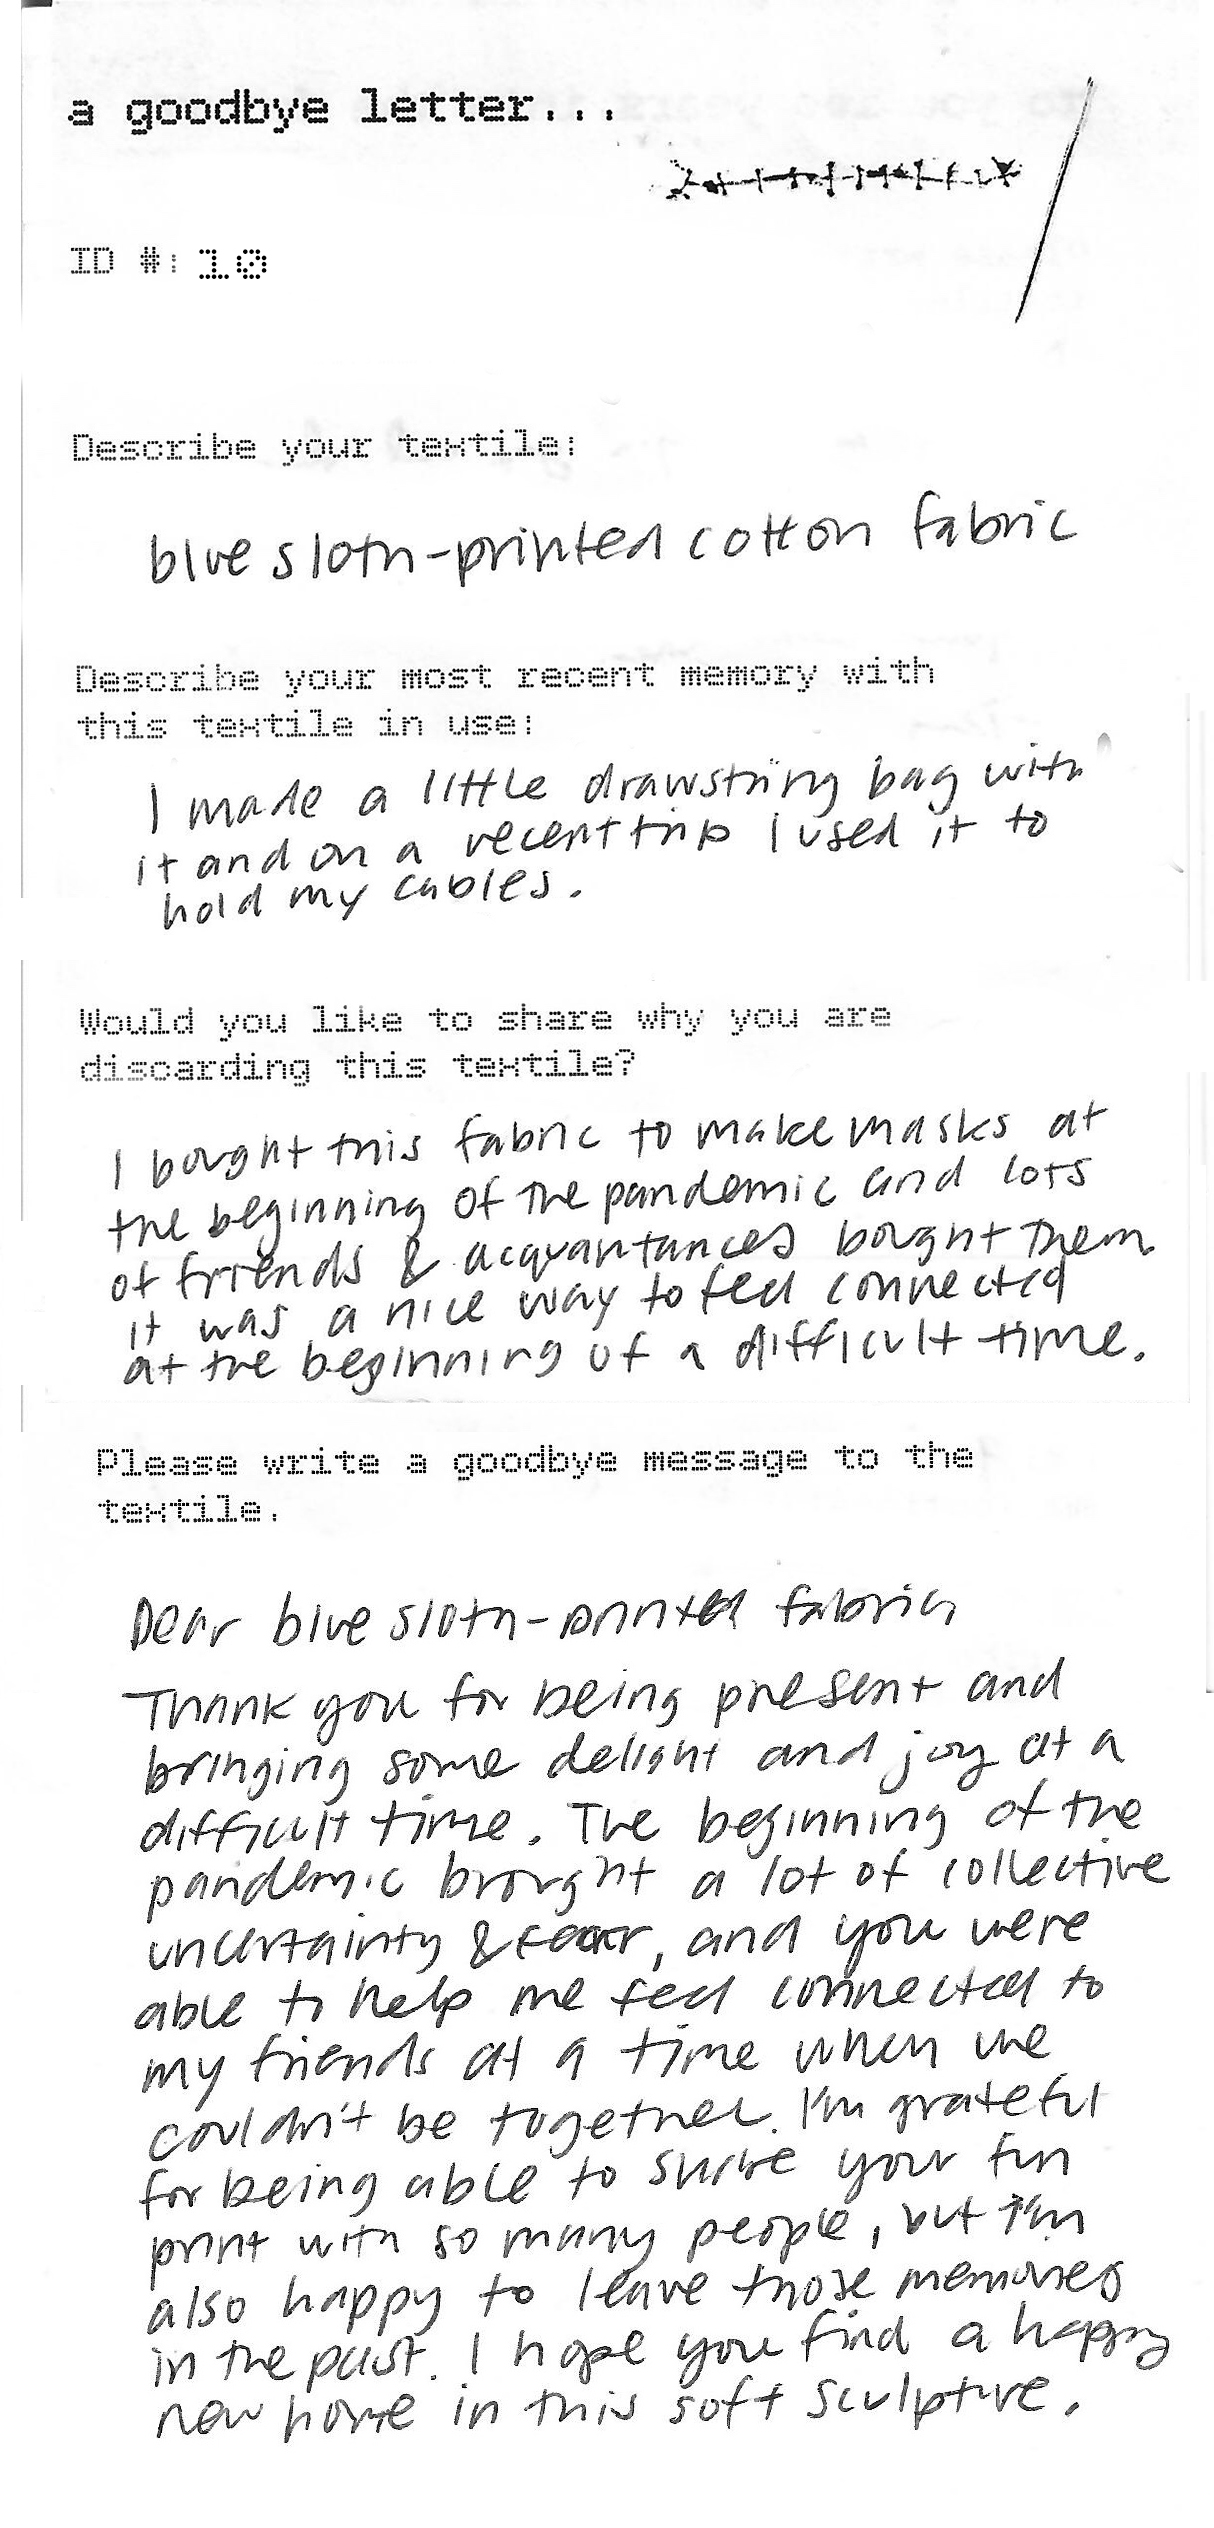 a goodbye letter...
ID #: 10
Describe your textile:
blue sloth-printed cotton fabric
Describe your most recent memory with
this textile in use:
I made a little drawstring bag with
it and on a recent trip I used it to
hold my cables.
Would you like to share why you are
discarding this textile?
I bought this fabric to make masks at
the beginning of the pandemic and lots
of friends & acquantances bought them
it was a nice way to feel connected
at the beginning of a difficult time.
Please write a goodbye message to the
textile.
Dear blue sloth-printed fabric,
Thank you for being present and
bringing some delight and joy at a
difficult time. The beginning of the
pandemic brought a lot of collective
uncertainty & fear, and you were
able to help me feel connected to
my friends at a time when we
couldn't be together. I'm grateful
for being able to share your fun
print with so many people, but I'm
also happy to leave those memories
in the past. I hope you find a happy
new home in this soft sculpture.